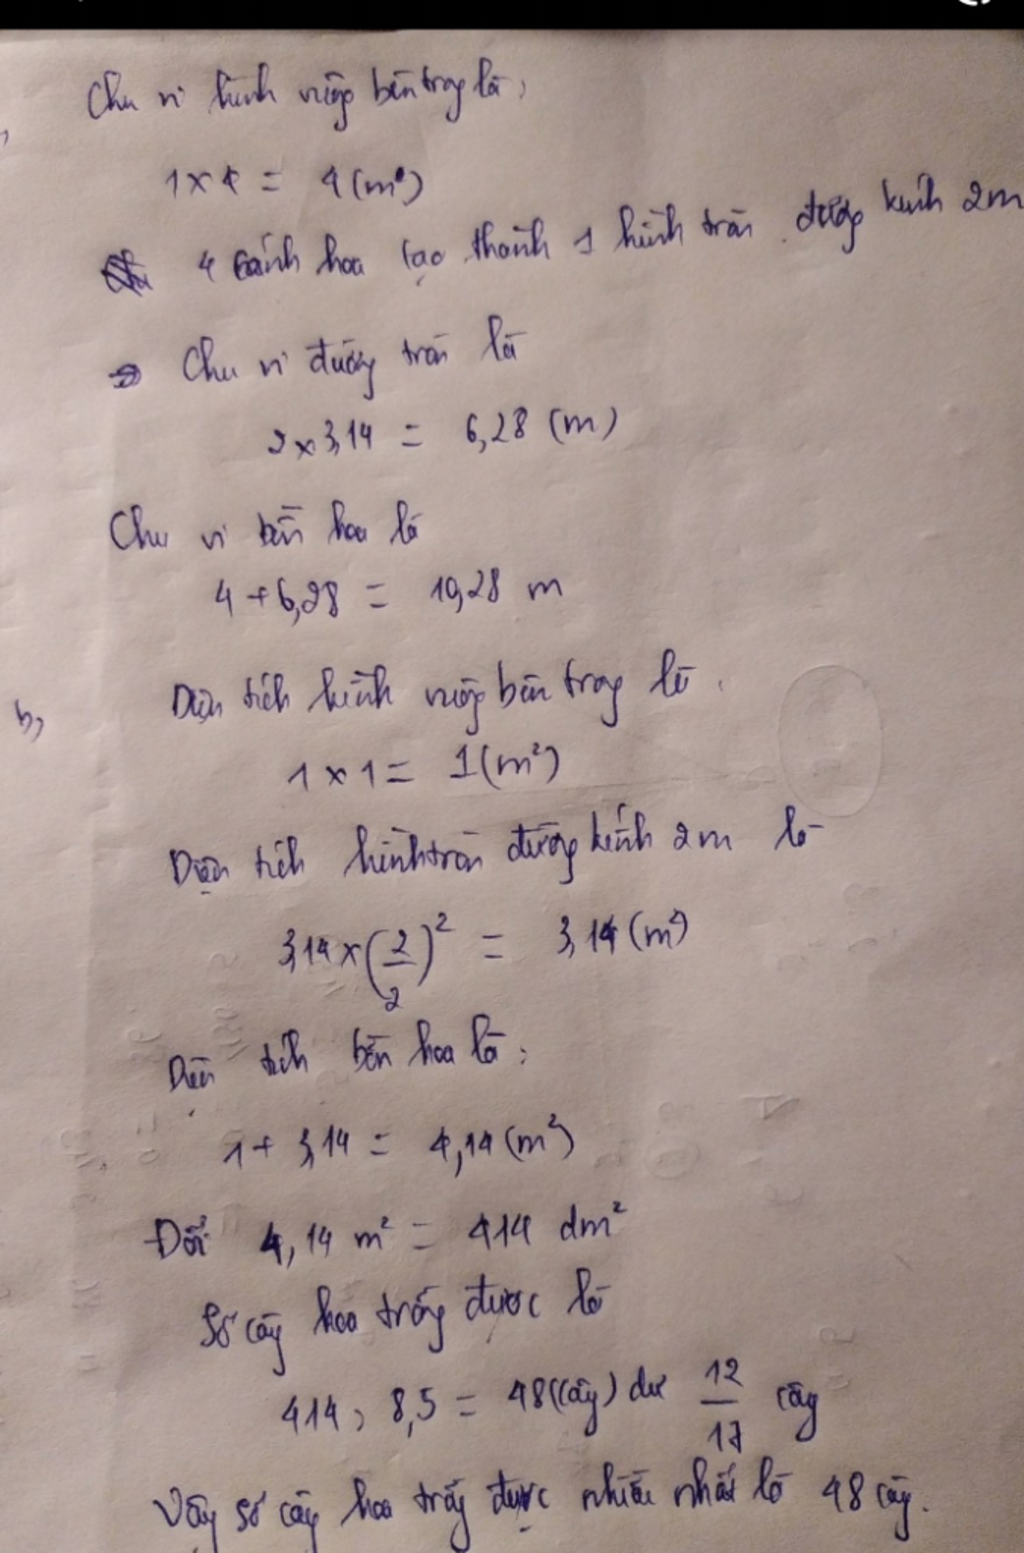 Chu vi hình vuông bên trong là:
1 x 4 = 4 (m²)
4 cánh hoa tạo thành 1 hình tròn đường kính 2m
=> Chu vi đường tròn là
2 x 3,14 = 6,28 (m)
Chu vi bồn hoa là
4 + 6,28 = 10,28 m
b, Diện tích hình vuông bên trong là.
1 x 1 = 1 (m²)
Diện tích hình tròn đường kính 2m là
3,14 x (2/2)² = 3,14 (m²)
Diện tích bồn hoa là:
1 + 3,14 = 4,14 (m²)
Đổi 4,14 m² = 414 dm²
Số cây hoa trồng được là
414 : 8,5 = 48 (cây) dư 12/17 cây
Vậy số cây hoa trồng được nhiều nhất là 48 cây.